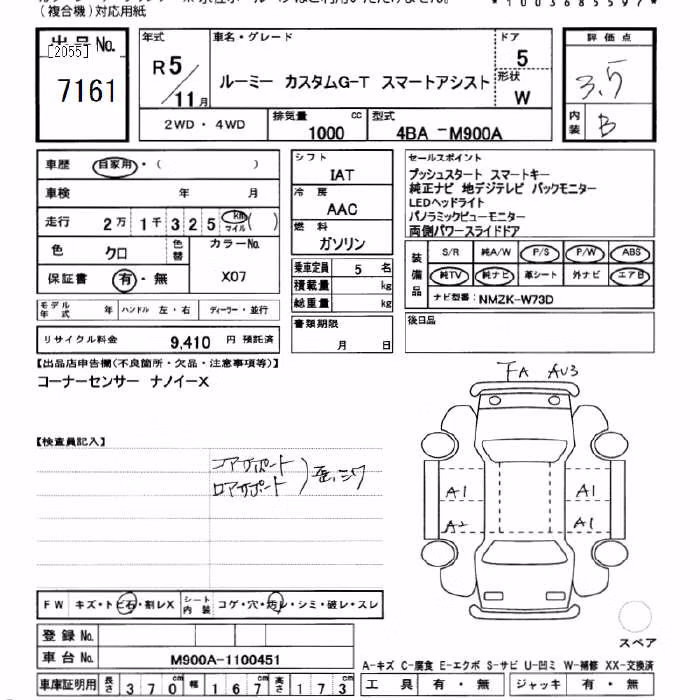 (複合機)対応用紙
*1003685597*
出品No.
[2055]
7161
年式
R5/11月
車名・グレード
ルーミー カスタムG-T スマートアシスト
ドア
5
形状
W
評価点
3.5
内装
B
2WD・4WD
排気量
1000
cc
型式
4BA -M900A
車歴
自家用・( )
車検 年 月
走行 2万 1千 3 2 5 km マイル ( )
色 クロ
色替
カラーNo.
X07
保証書 有・無
モデル年式 年 ハンドル 左・右 ディーラー・並行
リサイクル料金 9,410 円 預託済
シフト
IAT
冷房
AAC
燃料
ガソリン
乗車定員 5 名
積載量 kg
総重量 kg
書類期限
月 日
セールスポイント
プッシュスタート スマートキー
純正ナビ 地デジテレビ バックモニター
LEDヘッドライト
パノラミックビューモニター
両側パワースライドドア
装備品
S/R 純A/W P/S P/W ABS
純TV 純ナビ 革シート 外ナビ エアB
ナビ型番: NMZK-W73D
後日品
【出品店申告欄(不良箇所・欠品・注意事項等)】
コーナーセンサー ナノイーX
【検査員記入】
コアサポート
ロアサポート
FA AU3
A1 A1
A2 A1
FW キズ・トビ石・割レX
シート内装
コゲ・穴・汚レ・シミ・破レ・スレ
登録No.
車台No. M900A-1100451
車庫証明用 長さ 370cm 幅 167cm 高さ 173cm
スペア
A-キズ C-腐食 E-エクボ S-サビ U-凹ミ W-補修 XX-交換済
工具 有・無 ジャッキ 有・無